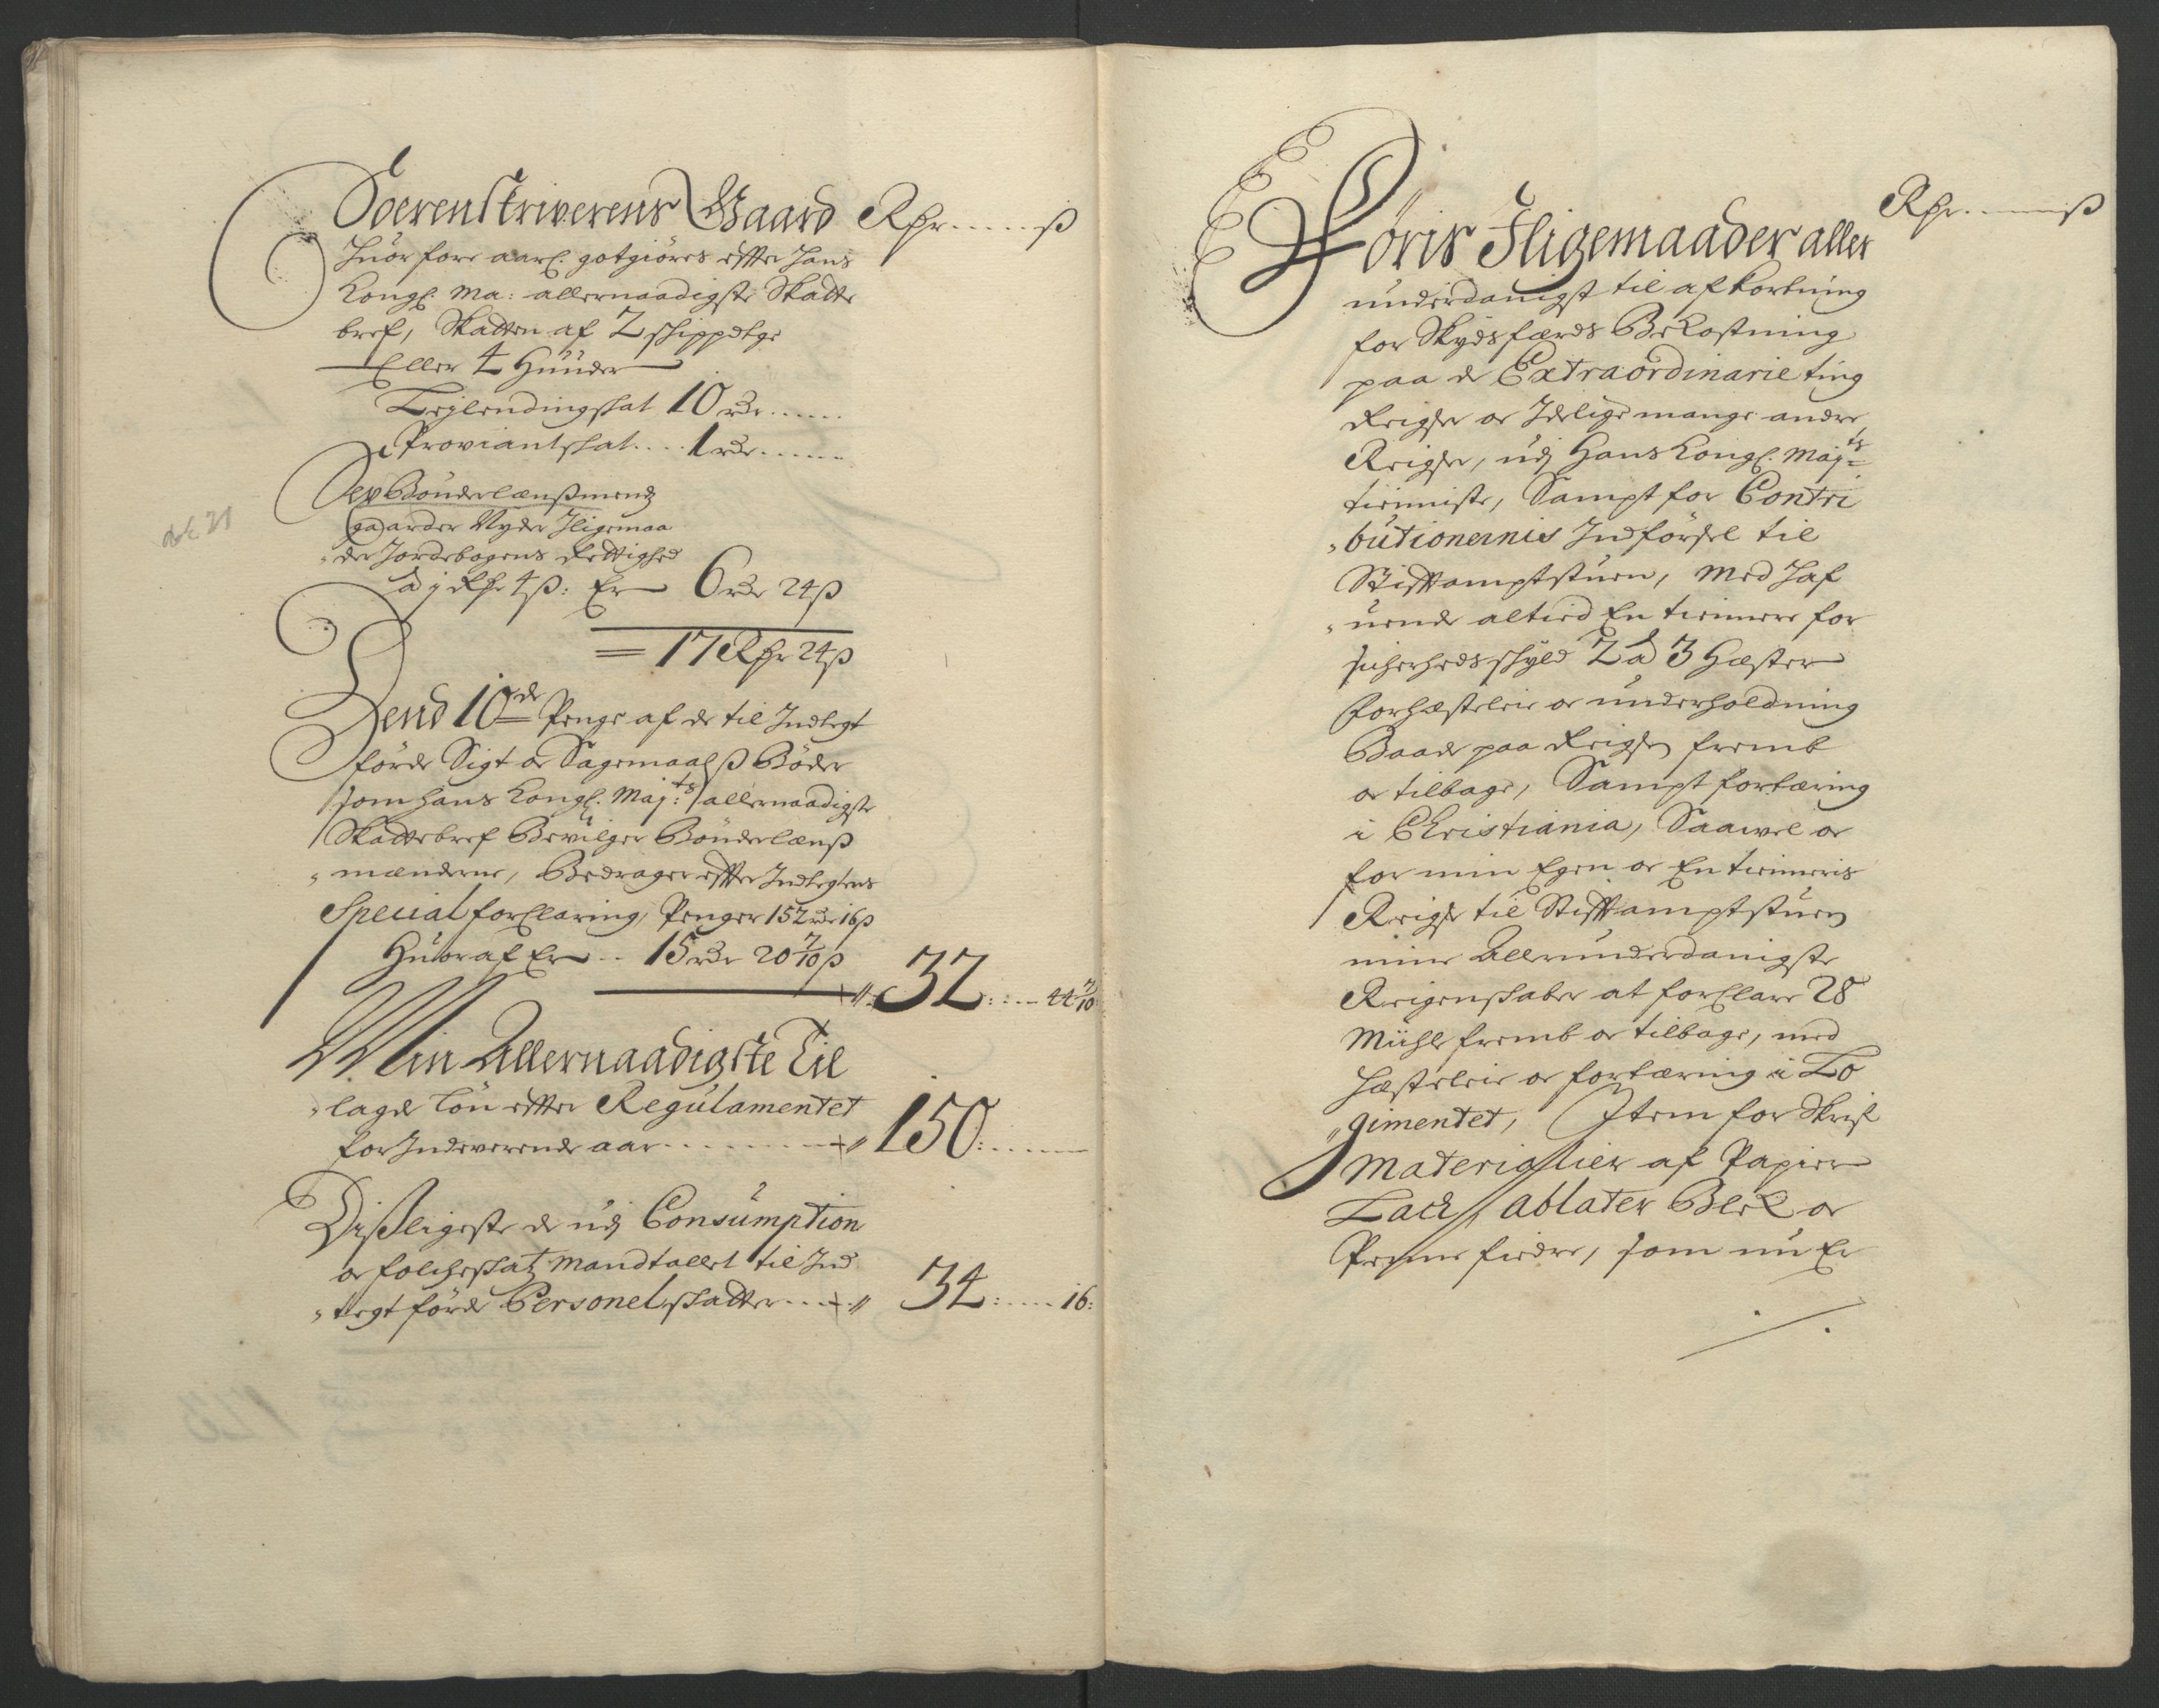 Soerenskriverens Gaard Rdr ß
Huor fore aarl. gotgiöres effter Hans
Kongl. Ma: allernaadigste Skatte
bref, Skatten af 2 skippdtge
Eller 4 Huuder
Leylendingskat 10 rdr
Proviantskat 1 rdr
Sex Bönderlænßmend
gaarder Nyder Iligemaa
de Jordebogens Rettighed
à j Rdr 4 ß: Er 6 rdr 24 ß
= 17 Rdr 24 ß
Dend 10de Penge af de til Indtegt
förde Sigt oc Sagemaalß Böder
som hans Kongl. Maj:ts allernaadigste
Skattebref Bevilger Bönderlænß
mænderne, Bedrager effter Indtegtens
Special forklaring, Penger 152 rdr 16 ß
Huoraf Er 15 rdr 20 7/10 ß
32: 44 7/10
Min Allernaadigste Til
lagde Lön effter Regulamentet
for Indeverende aar 150:
Dißligeste de udj Consumption
oc folcheskatz Mandtallet til Ind
tegt förde Personel skatter 34: 16:
Rdr ß
Föris Iligemaader aller
underdanigst til afkortning
for Skydsfærds Bekostning
paa de Extraordinarie ting
Reigser oc Idelige mange andre
Reigser, udj Hans Kongl. Maj:ts
tienniste, Sampt for Contri
butionernis Indförsel til
Stifftamptstuen, Med Haf
uende altied En tiennere for
sicherheds skyld 2 à 3 Hæster
forhæsteleie oc underholdning
Baade paa Reigsen fremb
oc tilbage, Sampt fortæring
i Christiania, Saavel oc
for min Egen oc En tienneris
Reigse til Stifftamptstuen
mine Allerunderdanigste
Reigenskaber at forklare 28
Muhle fremb oc tilbage, med
hæsteleie oc fortæring i Lo
gimentet, Item for Skrif
Materialier af Papier
Lack, ablater Blek oc
Penne fiedre, som nu Er